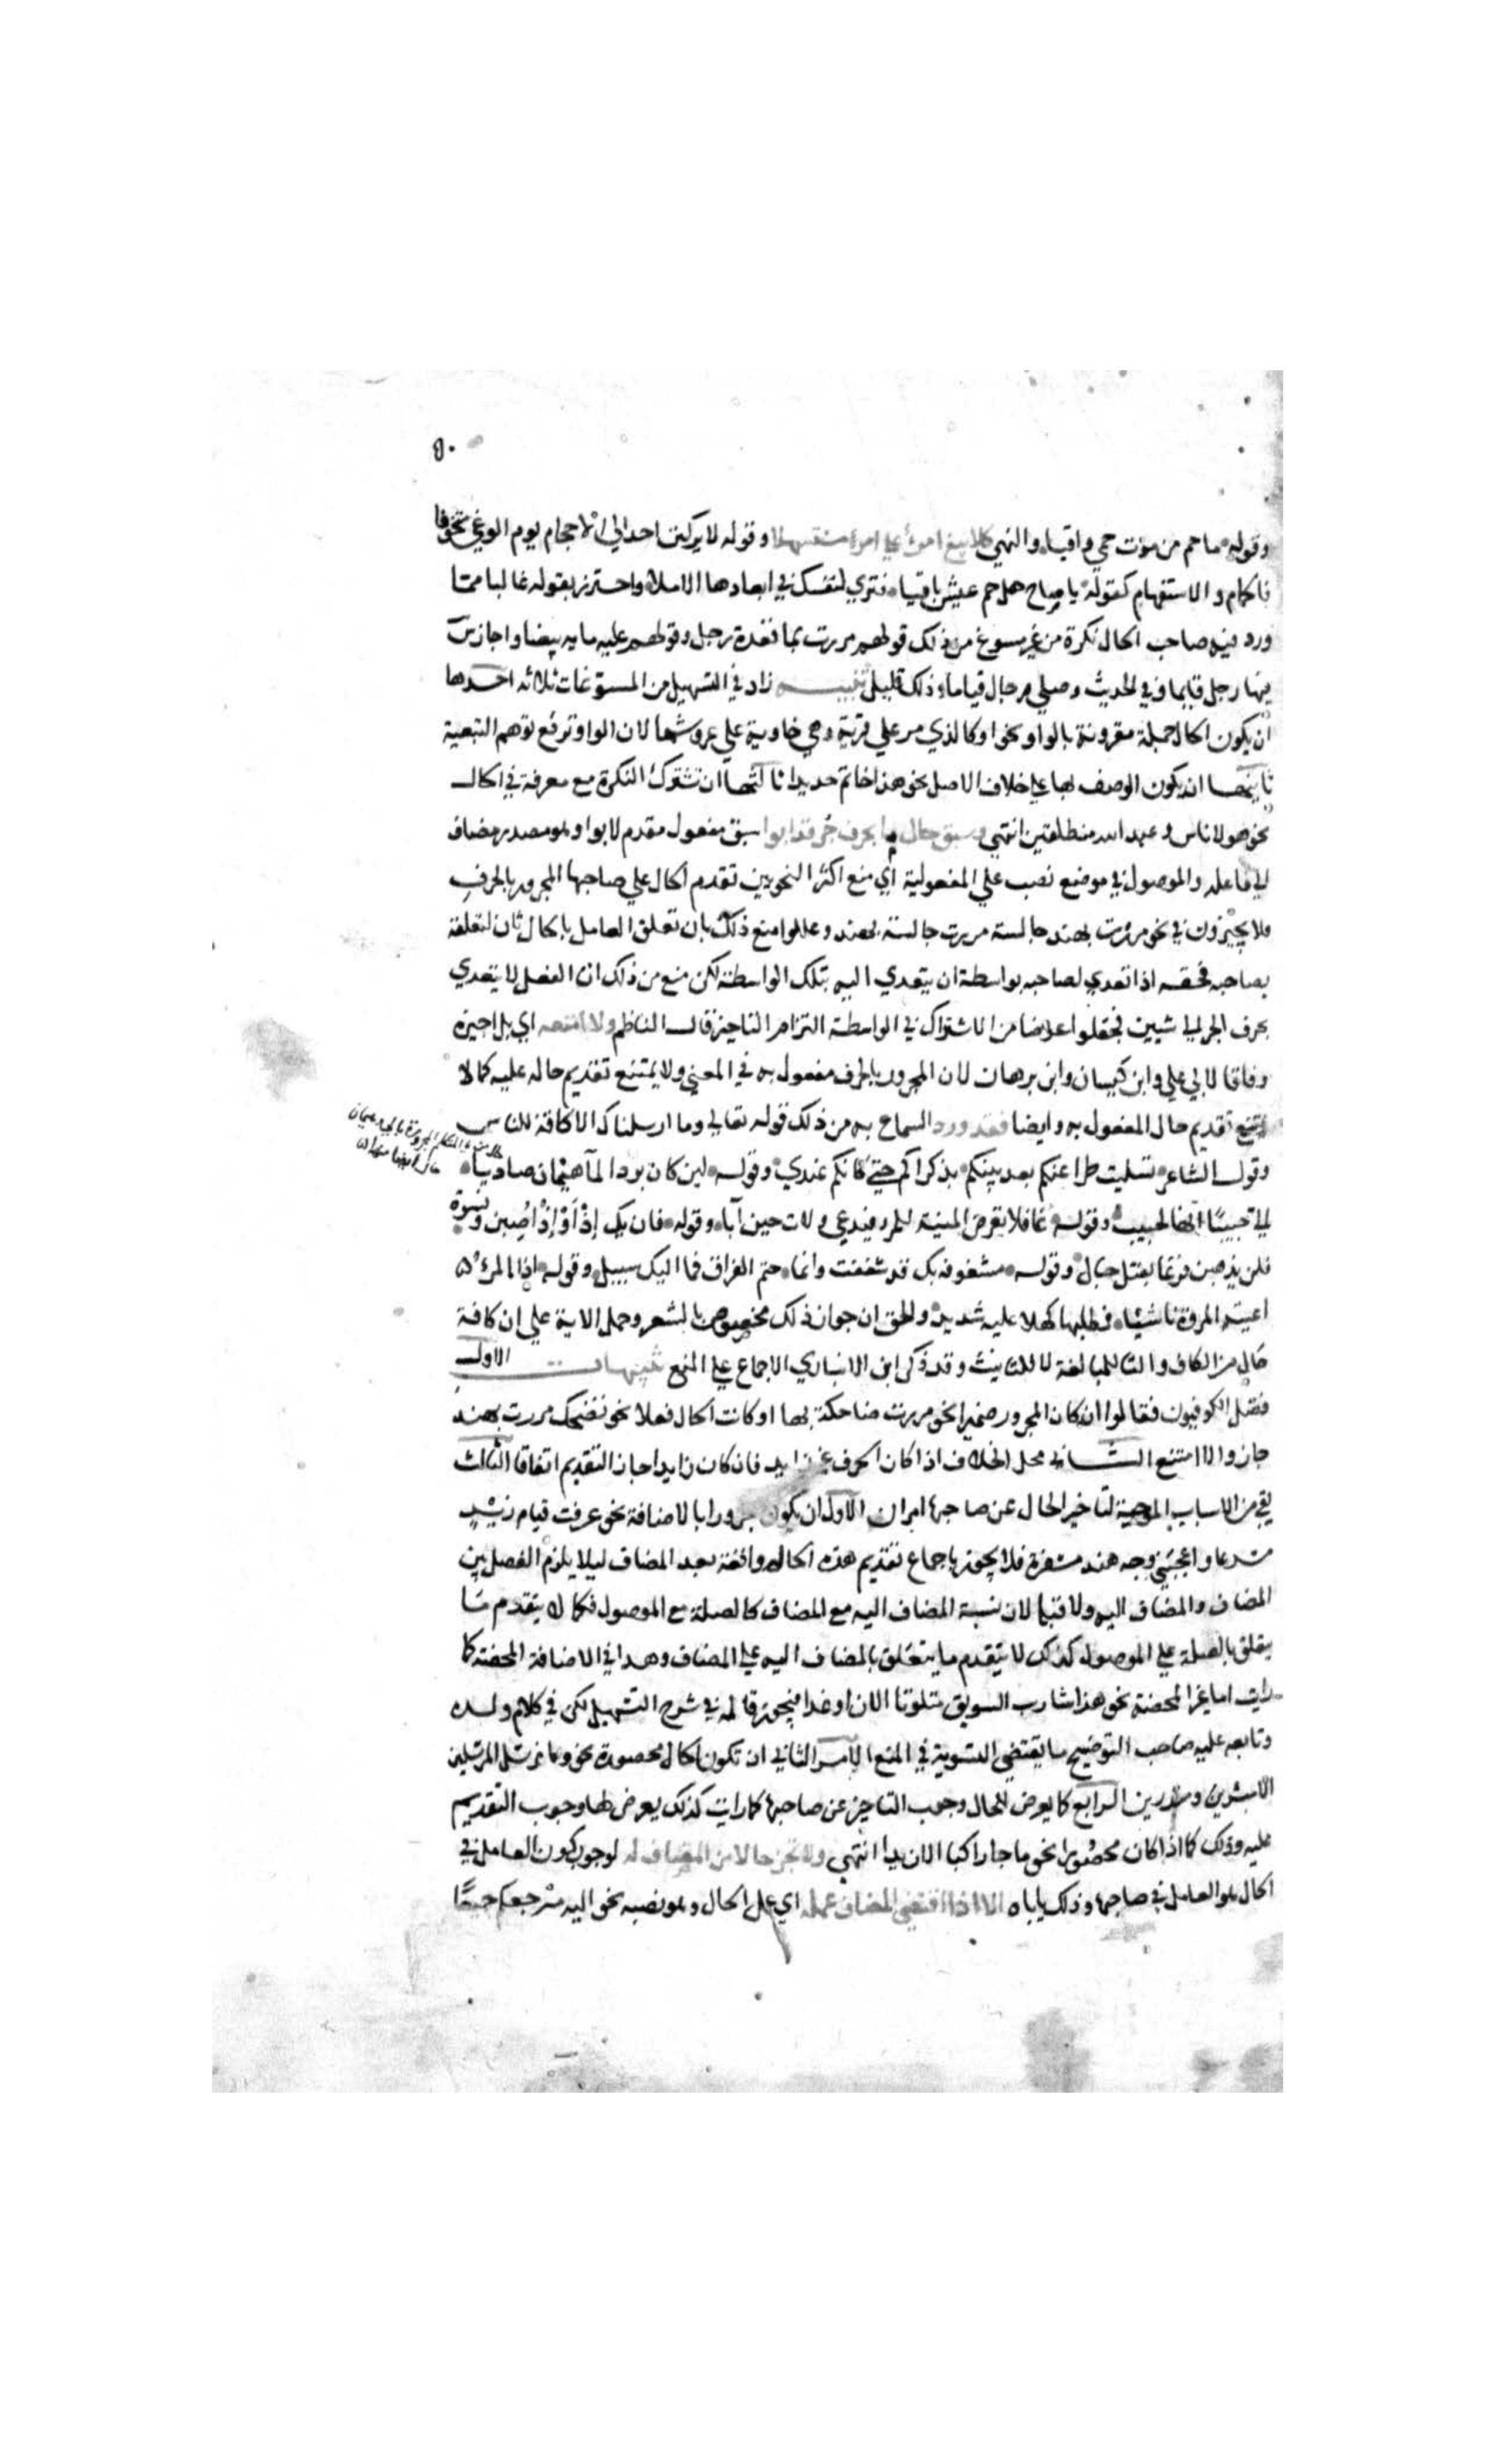 ٥٠
وقوله ما حم من موت حمي واقيا والنهي كلا يبغ امرؤ علي امرء مستسهلا وقوله لا يركنن احد الي الاحجام يوم الوغي متخوفا
لحمام والاستفهام كقوله يا صاح هل حم عيش باقيا فتري لنفسك في ابعادها الاملا واحترز بقوله غالبا مما
ورد فيه صاحب الحال نكرة من غير مسوغ من ذلك قولهم مررت بما قعدة رجل وقولهم عليه مايه بيضا واجاز س
فيها رجل قايما وفي الحديث وصلي رجال قياما وذلك قليل تنبيه زاد في التسهيل من المسوغات ثلاثه احدها
ان يكون الحال جملة مقرونة بالواو نحو او كالذي مر علي قرية وهي خاوية علي عروشها لان الواو ترفع توهم التبعية
ثانيها ان يكون الوصف بها علي خلاف الاصل نحو هذا خاتم حديدا ثالثها ان تشترك النكرة مع معرفة في الحال
نحو هولا ناس وعبد الله منطلقين انتهي وسبق حال ما بحرف جر قد ابوا سبق مفعول مقدم لابوا وهو مصدر مضاف
الي فاعله والموصول في موضع نصب علي المفعولية اي منع اكثر النحويين تقدم الحال علي صاحبها المجرور بالحرف
فلا يجيزون في نحو مررت بهند جالسة مررت جالسة بهند وعللوا منع ذلك بان تعلق العامل بالحال ثان لتعلقه
بصاحبه فحقه اذا تعدي لصاحبه بواسطة ان يتعدي اليه بتلك الواسطة لكن منع من ذلك ان الفعل لا يتعدي
بحرف الجر الي شيين فجعلوا عوضا من الاشتراك في الواسطة التزام التاخير قال الناظم ولا امنعه اي بل اجيزه
وفاقا لابي علي وابن كيسان وابن برهان لان المجرور بالحرف مفعول به في المعني ولا يمتنع تقديم حاله عليه كما لا
يمتنع تقديم حال المفعول به وايضا فقد ورد السماع به من ذلك قوله تعالي وما ارسلناك الا كافة للناس
وقول الشاعر تسليت طرا عنكم بعد بينكم بذكراكم حتي كانكم عندي وقوله لين كان برد الما هيمان صاديا
الي حبيبا انها لحبيب وقوله غافلا يعرض المنية للمرء فيدعي ولات حين آباء وقوله فان يك إذْ أوْ إذْ اُصِبن ونسوة
فلن يذهبن فرغا بقتل حبال وقوله مشغوفة بك قد شغفت وانما حتم الفراق فما اليك سبيل وقوله اذا المرء
اعيته المروة ناشيا فطلبها كهلا عليه شديد والحق ان جواز ذلك مخصوص بالشعر وحمل الاية علي ان كافة
حال من الكاف والتا للمبالغة لا للتانيث وقد ذكر ابن الانباري الاجماع علي المنع تنبيهات الاول
فصل الكوفيون فقالوا ان كان المجرور ضميرا نحو مررت ضاحكة بها او كانت الحال فعلا نحو تضحك مررت بهند
جاز والا امتنع الثاني محل الخلاف اذا كان الحرف غير زايد فان كان زايدا جاز التقديم اتفاقا الثالث
بقي من الاسباب الموجبة لتاخير الحال عن صاحبها امران الاول ان يكون مجرورا بالاضافة نحو عرفت قيام زيد
مسرعا واعجبني وجه هند مسفرة فلا يجوز باجماع تقديم هذه الحال واقعة بعد المضاف ليلا يلزم الفصل بين
المضاف والمضاف اليه ولا قبله لان نسبة المضاف اليه مع المضاف كالصلة مع الموصول فكما لا يتقدم ما
يتعلق بالصلة علي الموصول كذلك لا يتقدم ما يتعلق بالمضاف اليه علي المضاف وهذا في الاضافة المحضة كما
رايت اما غير المحضة نحو هذا شارب السويق ملتوتا الان او غدا فيجوز قاله في شرح التسهيل لكن في كلام ولده
وتابعه عليه صاحب التوضيح ما يقتضي التسوية في المنع الامر الثاني ان تكون الحال محصورة نحو وما نرسل المرسلين
الا مبشرين ومنذرين الرابع كما يعرض للحال وجوب التاخير عن صاحبها كما رايت كذلك يعرض لها وجوب التقديم
عليه وذلك كما اذا كان محصورا نحو ما جا راكبا الا زيد انتهي ولا تجز حالا من المضاف له لوجوب كون العامل في
الحال هو العامل في صاحبها وذلك ياباه الا اذا اقتضي المضاف عمله اي عمل الحال وهو نصبه نحو اليه مرجعكم جميعا